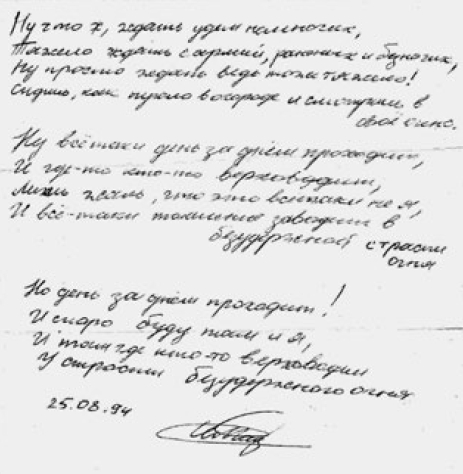 Ну что ж, ждать удел немногих,
Тяжело ждать с армией, раненых и безногих,
Ну просто ждать ведь тоже тяжело!
Сидишь, как пугало в огороде и смотришь в
своё окно.
Ну всё-таки день за днём проходит,
И где-то кто-то верховодит,
Лишь жаль, что это всё-таки не я,
И всё-таки томление заводит в
безудержной страсти
огня
Но день за днём проходит!
И скоро буду там и я,
И там где кто-то верховодил
У страсти безудержного огня
25.08.94